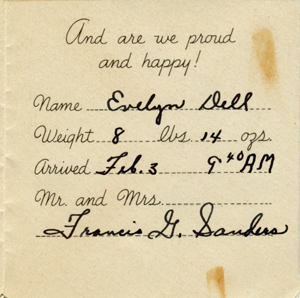 And are we proud
and happy!
Name Evelyn Dell
Weight 8 lbs. 14 ozs.
Arrived Feb. 3 9 40 AM
Mr. and Mrs.
Francis G. Sanders